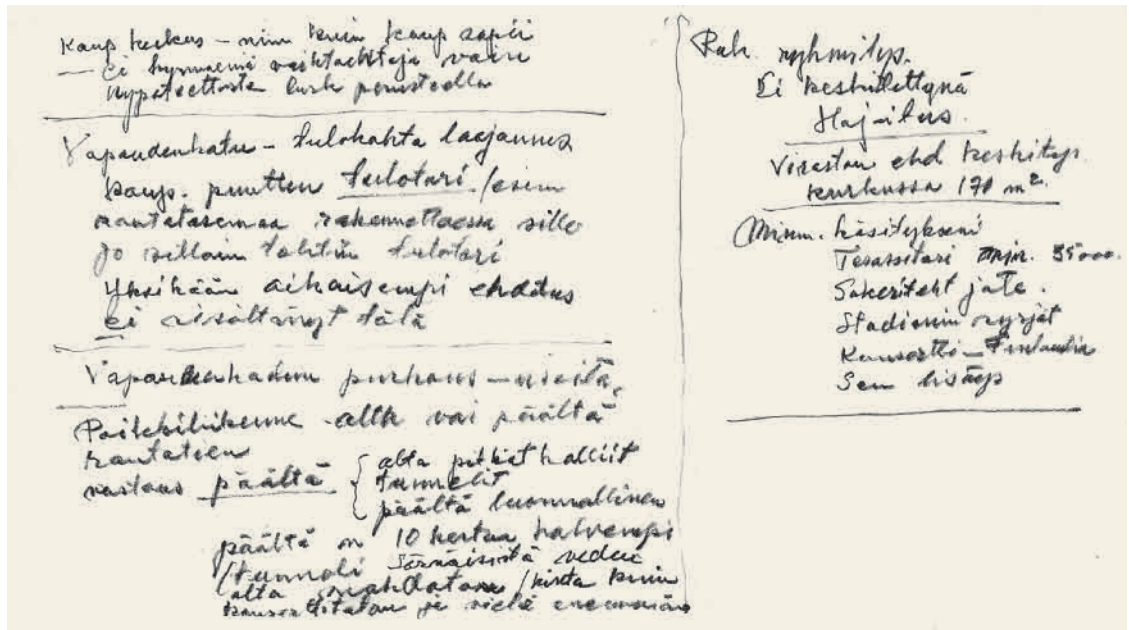 Kaup keskus – niin kuin kaup sopii
— Ei kysymeniä vaihtoehtoja vain
hypoteettista perusteella
Vapaudenkatu – tulokahta laajannus
kaup. puuttuu tulotori / esim
rautatasemaa rakennettaessa sille
jo silloin tulotori
Yksikään aikaisempi ehdotus
ei sisältänyt tätä
Vapaudenkadun purkaus –
Poikkiliikenne – alta vai päältä
rautatien
vastaus päältä { alta pitkät kalliit
tunnelit
päältä luonnollinen
päältä on 10 kertaa halvempi
/tunneli Sörnäisistä veden
alta mahdoton / hinta kuin
konserttitalon ja vielä enemmän
Rak. ryhmitys.
Ei keskitettynä
Hajoitus.
Viraston ehd keskitys
170 m².
Minun käsitykseni
Terassitori 35000.
Stadionin
Konsertti – Finlandia
Sen lisäys